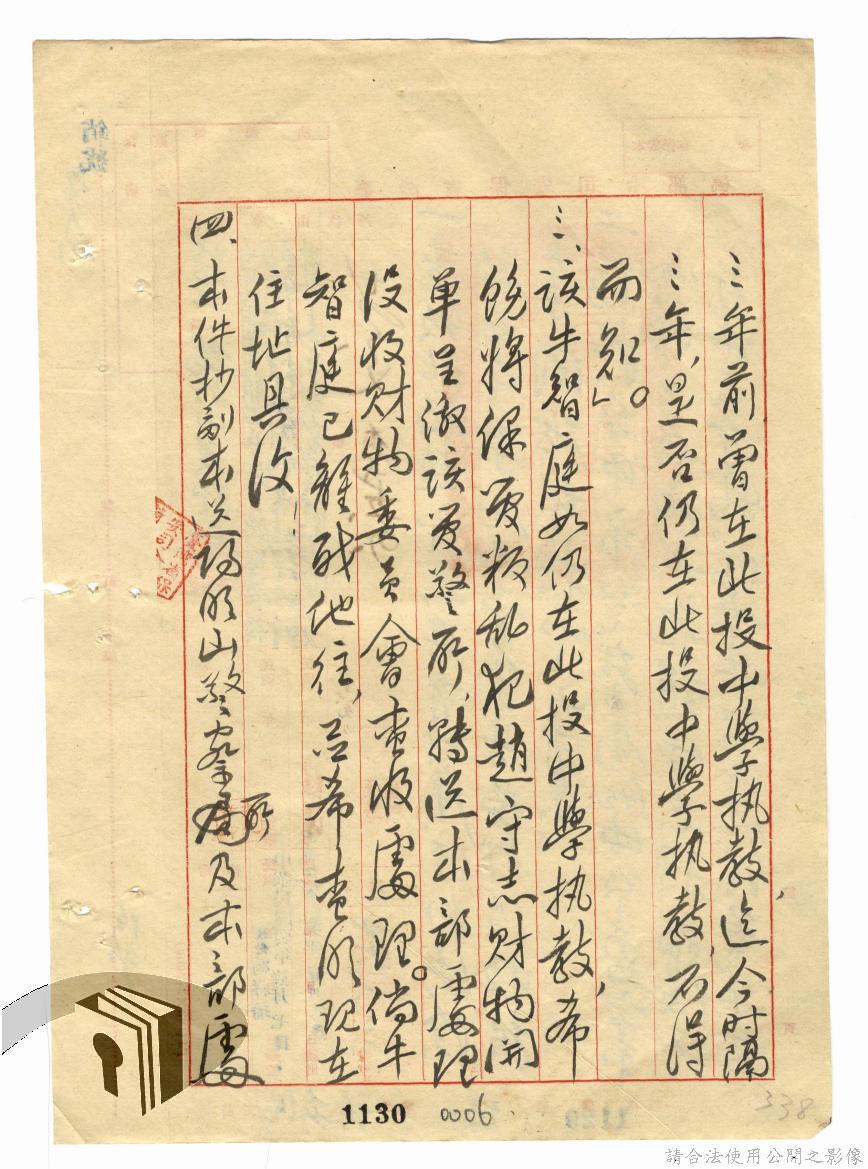 三年前曾在北投中學执教，迄今时隔
三年，是否仍在北投中學执教，不得
而知」。
三、該牛智庭如仍在北投中學执教，希
飭將保管叛乱犯趙守志财物開
单呈繳該管警所，轉送本部處理
没收财物委員會查收處理。倘牛
智庭已離职他往，并希查明现在
住址具復！
四、本件抄副本送陽明山警察所及本部處
1130
0006
338
請合法使用公開之影像